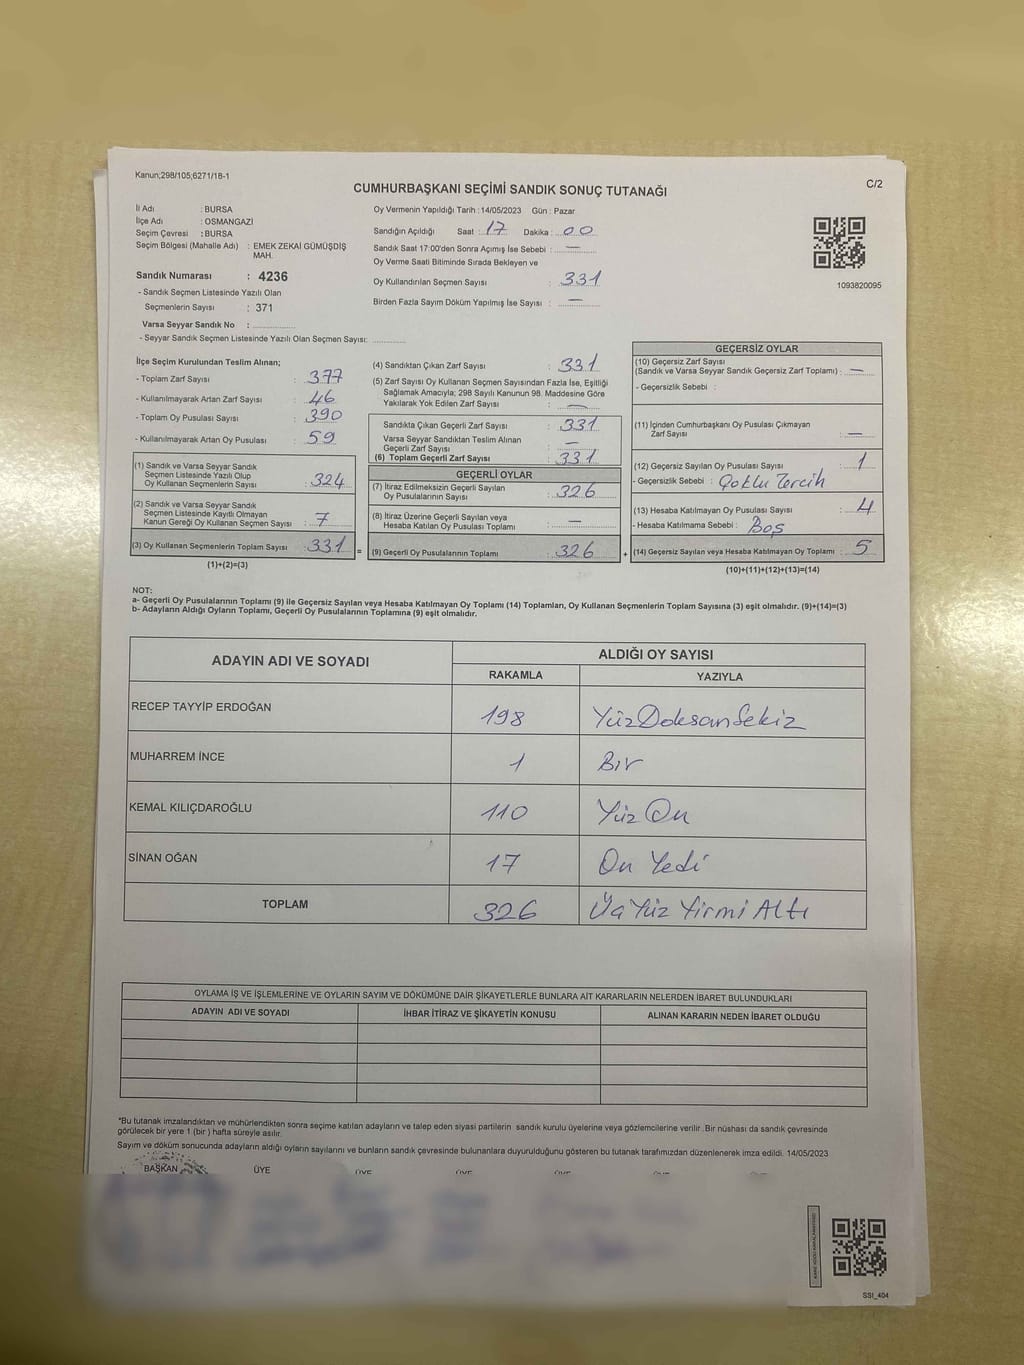 Kanun;298/105;6271/18-1
C/2
CUMHURBAŞKANI SEÇİMİ SANDIK SONUÇ TUTANAĞI
İl Adı : BURSA
İlçe Adı : OSMANGAZİ
Seçim Çevresi : BURSA
Seçim Bölgesi (Mahalle Adı) : EMEK ZEKAİ GÜMÜŞDİŞ
MAH.
Sandık Numarası : 4236
- Sandık Seçmen Listesinde Yazılı Olan
Seçmenlerin Sayısı : 371
Varsa Seyyar Sandık No :
- Seyyar Sandık Seçmen Listesinde Yazılı Olan Seçmen Sayısı:
Oy Vermenin Yapıldığı Tarih : 14/05/2023 Gün : Pazar
Sandığın Açıldığı Saat : 17 Dakika : 00
Sandık Saat 17:00'den Sonra Açımış İse Sebebi : —
Oy Verme Saati Bitiminde Sırada Bekleyen ve
Oy Kullandırılan Seçmen Sayısı : 331
Birden Fazla Sayım Döküm Yapılmış İse Sayısı : —
1093820095
İlçe Seçim Kurulundan Teslim Alınan;
- Toplam Zarf Sayısı : 377
- Kullanılmayarak Artan Zarf Sayısı : 46
- Toplam Oy Pusulası Sayısı : 390
- Kullanılmayarak Artan Oy Pusulası : 59
(1) Sandık ve Varsa Seyyar Sandık
Seçmen Listesinde Yazılı Olup
Oy Kullanan Seçmenlerin Sayısı : 324
(2) Sandık ve Varsa Seyyar Sandık
Seçmen Listesinde Kayıtlı Olmayan
Kanun Gereği Oy Kullanan Seçmen Sayısı : 7
(3) Oy Kullanan Seçmenlerin Toplam Sayısı : 331 =
(1)+(2)=(3)
(4) Sandıktan Çıkan Zarf Sayısı : 331
(5) Zarf Sayısı Oy Kullanan Seçmen Sayısından Fazla İse, Eşitliği
Sağlamak Amacıyla; 298 Sayılı Kanunun 98. Maddesine Göre
Yakılarak Yok Edilen Zarf Sayısı : —
Sandıkta Çıkan Geçerli Zarf Sayısı : 331
Varsa Seyyar Sandıktan Teslim Alınan
Geçerli Zarf Sayısı : —
(6) Toplam Geçerli Zarf Sayısı : 331
GEÇERLİ OYLAR
(7) İtiraz Edilmeksizin Geçerli Sayılan
Oy Pusulalarının Sayısı : 326
(8) İtiraz Üzerine Geçerli Sayılan veya
Hesaba Katılan Oy Pusulası Toplamı : —
(9) Geçerli Oy Pusulalarının Toplamı : 326 +
GEÇERSİZ OYLAR
(10) Geçersiz Zarf Sayısı
(Sandık ve Varsa Seyyar Sandık Geçersiz Zarf Toplamı) : —
- Geçersizlik Sebebi :
(11) İçinden Cumhurbaşkanı Oy Pusulası Çıkmayan
Zarf Sayısı : —
(12) Geçersiz Sayılan Oy Pusulası Sayısı : 1
- Geçersizlik Sebebi : Çoklu Tercih
(13) Hesaba Katılmayan Oy Pusulası Sayısı : 4
- Hesaba Katılmama Sebebi : Boş
(14) Geçersiz Sayılan veya Hesaba Katılmayan Oy Toplamı : 5
(10)+(11)+(12)+(13)=(14)
NOT:
a- Geçerli Oy Pusulalarının Toplamı (9) ile Geçersiz Sayılan veya Hesaba Katılmayan Oy Toplamı (14) Toplamları, Oy Kullanan Seçmenlerin Toplam Sayısına (3) eşit olmalıdır. (9)+(14)=(3)
b- Adayların Aldığı Oyların Toplamı, Geçerli Oy Pusulalarının Toplamına (9) eşit olmalıdır.
ADAYIN ADI VE SOYADI
ALDIĞI OY SAYISI
RAKAMLA YAZIYLA
RECEP TAYYİP ERDOĞAN 198 YüzDoksanSekiz
MUHARREM İNCE 1 Bir
KEMAL KILIÇDAROĞLU 110 Yüz On
SİNAN OĞAN 17 On Yedi
TOPLAM 326 Üç Yüz Yirmi Altı
OYLAMA İŞ VE İŞLEMLERİNE VE OYLARIN SAYIM VE DÖKÜMÜNE DAİR ŞİKAYETLERLE BUNLARA AİT KARARLARIN NELERDEN İBARET BULUNDUKLARI
ADAYIN ADI VE SOYADI İHBAR İTİRAZ VE ŞİKAYETİN KONUSU ALINAN KARARIN NEDEN İBARET OLDUĞU
*Bu tutanak imzalandıktan ve mühürlendikten sonra seçime katılan adayların ve talep eden siyasi partilerin sandık kurulu üyelerine veya gözlemcilerine verilir .Bir nüshası da sandık çevresinde
görülecek bir yere 1 (bir ) hafta süreyle asılır.
Sayım ve döküm sonucunda adayların aldığı oyların sayılarını ve bunların sandık çevresinde bulunanlara duyurulduğunu gösteren bu tutanak tarafımızdan düzenlenerek imza edildi. 14/05/2023
BAŞKAN ÜYE ÜYE ÜYE ÜYE ÜYE ÜYE
SSI_404